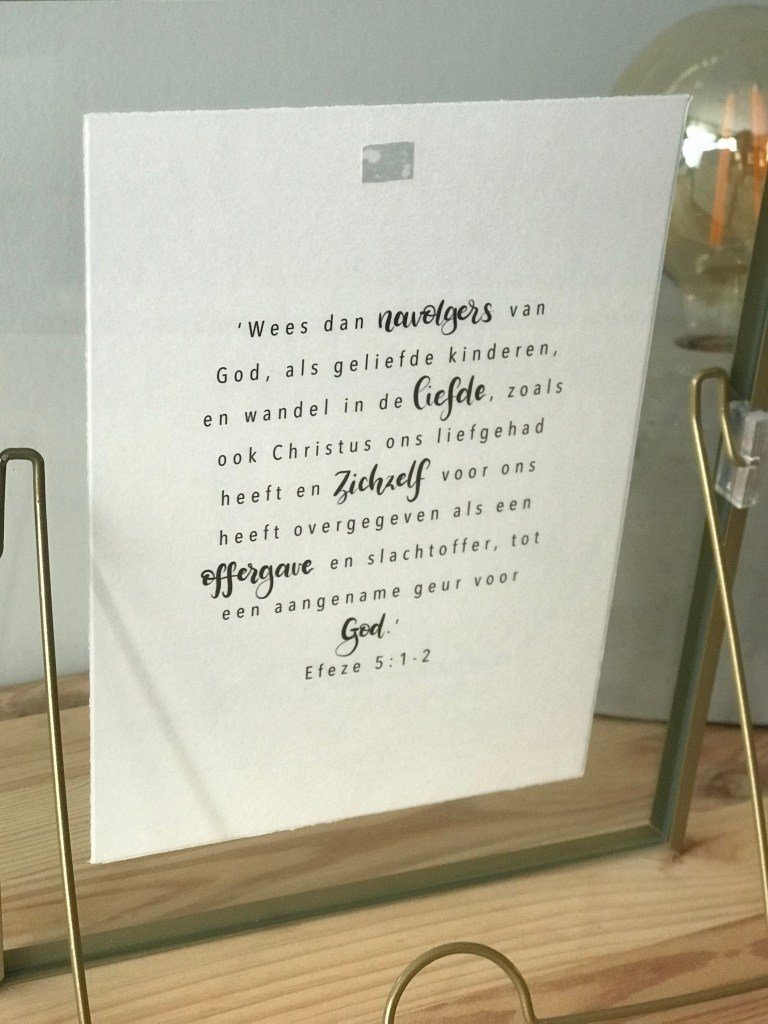 'Wees dan navolgers van
God, als geliefde kinderen,
en wandel in de liefde, zoals
ook Christus ons liefgehad
heeft en Zichzelf voor ons
heeft overgegeven als een
offergave en slachtoffer, tot
een aangename geur voor
God.'
Efeze 5:1-2